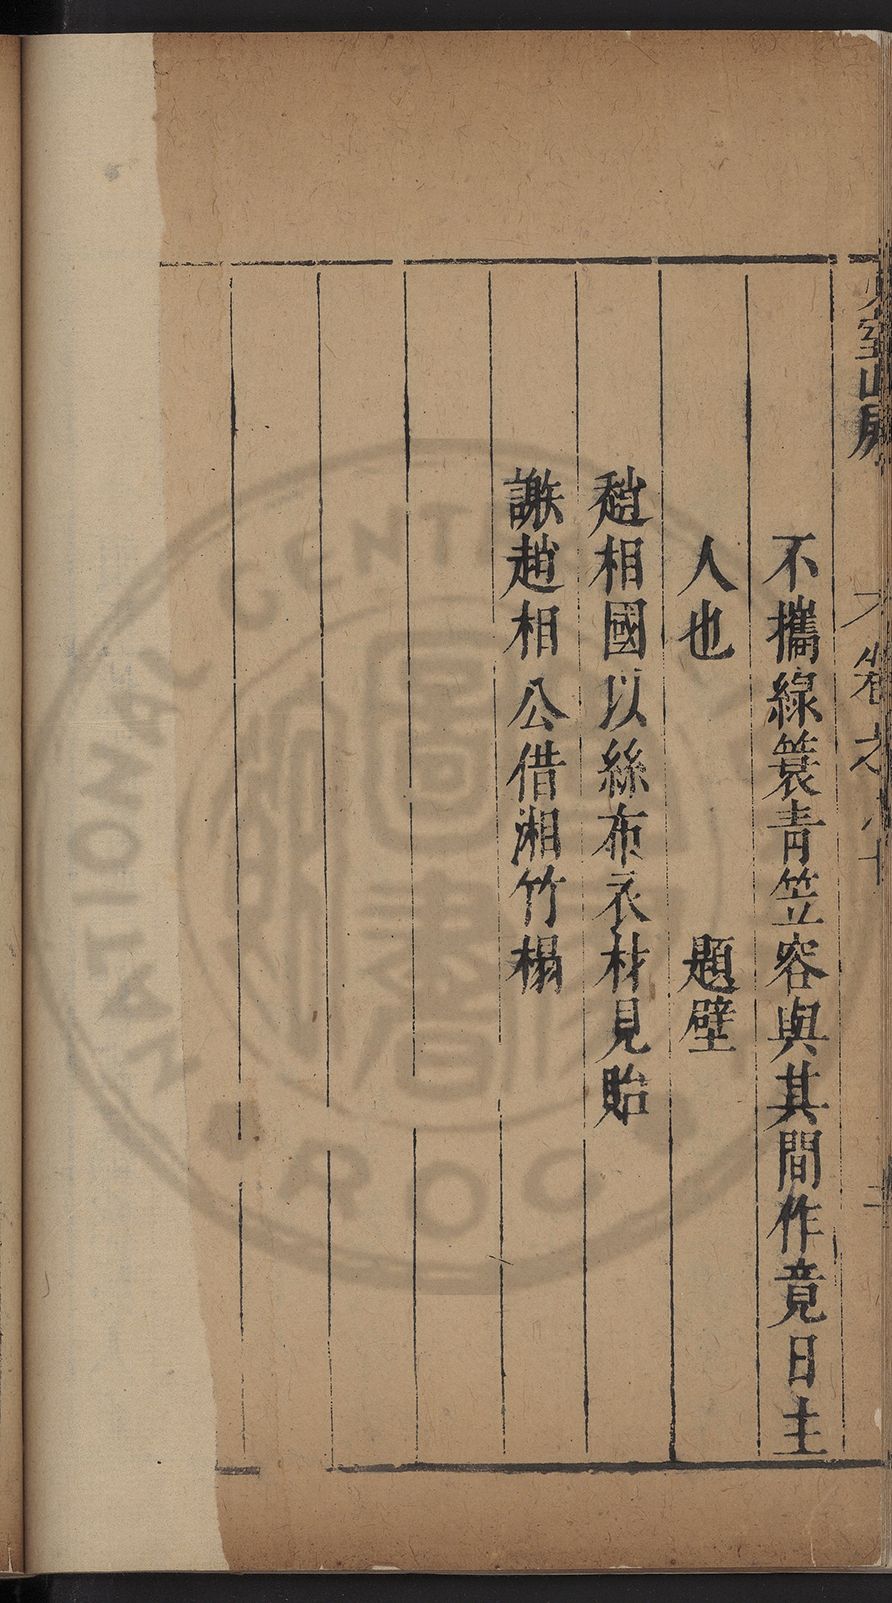 不攜綠簑青笠容與其間作竟日主
人也　題壁
趙相國以絲布衣材見貽
謝趙相公借湘竹榻